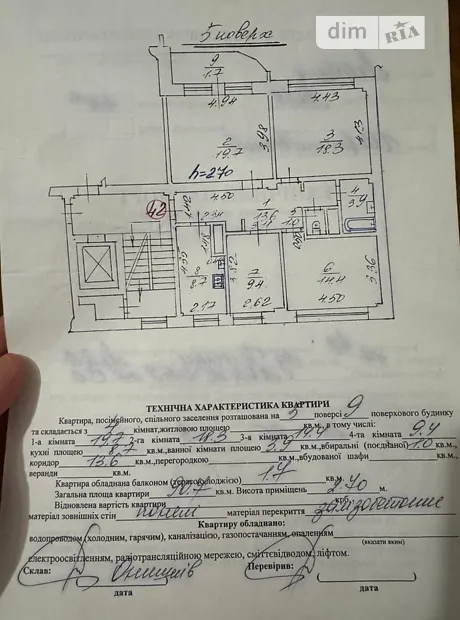 dim RIA
5 поверх
9
1.7
4.94
4.43
2
19.7
3.98
3
18.3
4.13
h=270
4.50
1
13.6
4
3.9
5
1.0
42
8
8.7
7
9.4
6
14.4
3.36
2.17
2.62
4.50
ТЕХНІЧНА ХАРАКТЕРИСТИКА КВАРТИРИ
Квартира, посімейного, спільного заселення розташована на 5 поверсі 9 поверхового будинку
та складається з кімнат, житловою площею кв.м., в тому числі:
1-а кімната 19.7 2-га кімната 18.3 3-я кімната 14.4 4-та кімната 9.4
кухні площею 8.7 кв.м., ванної кімнати площею 3.9 кв.м., вбиральні (поєднаної) 1.0 кв.м.,
коридор 13.6 кв.м., перегородкою кв.м., вбудованої шафи кв.м.,
веранди кв.м.
Квартира обладнана балконом (лоджією) 1.7 кв.м.
Загальна площа квартири 90.7 кв.м. Висота приміщень 2.70 м.
Відновлена вартість квартири крб.
матеріал зовнішніх стін панелі матеріал перекриття залізобетонне
Квартиру обладнано:
водопроводом (холодним, гарячим), каналізацією, газопостачанням, опаленням
(вказати яким)
електроосвітленням, радіотрансляційною мережею, сміттєвідводом, ліфтом.
Склав: Перевірив:
дата дата